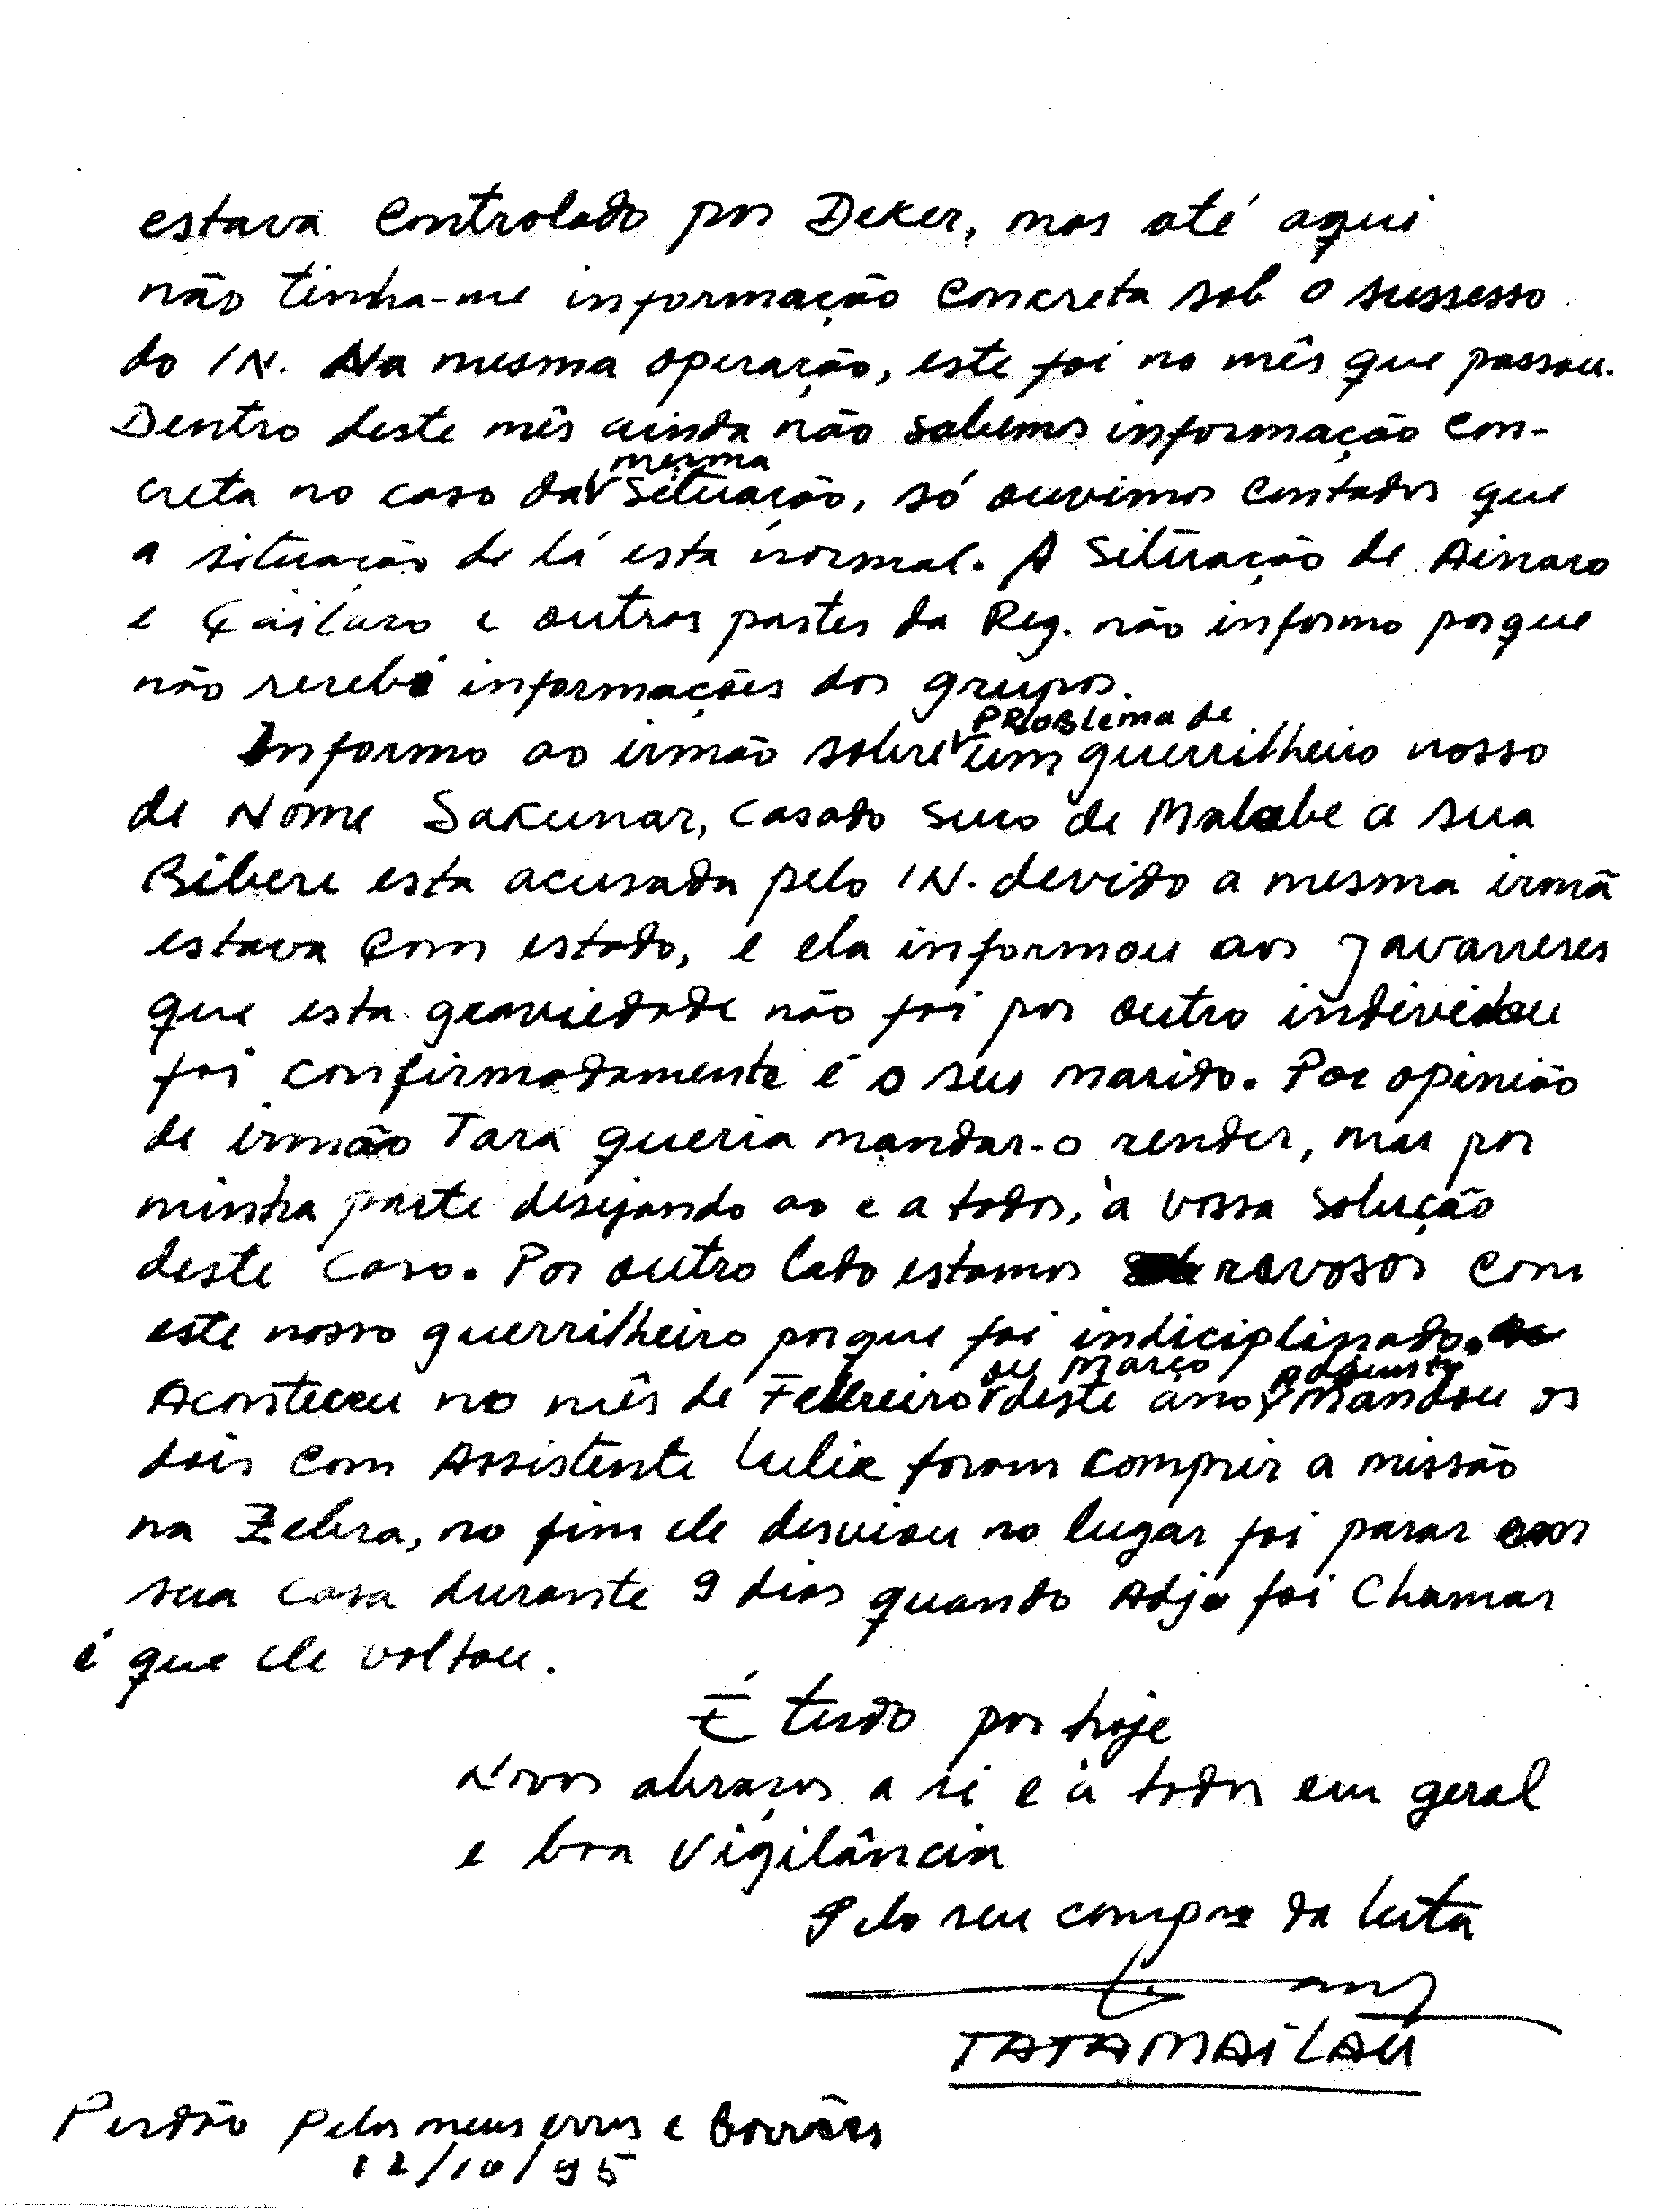 estava controlado por Deker, mas até aqui
não tinha-me informação concreta sob o sussesso
do IN. Na mesma operação, este foi no mês que passou.
Dentro deste mês ainda não sabemos informação con-
creta no caso da mesma situação, só ouvimos contados que
a situação de lá esta normal. A situação de Ainaro
e Çailaco e outras partes da Reg. não informo porque
não recebi informações dos grupos.
Informo ao irmão sobre PROBLEMA de um guerrilheiro nosso
de Nome Sakunar, casado suco de Malabe a sua
Bibere esta acusada pelo IN. devido a mesma irmã
estava com estado, e ela informou aos javaneses
que esta graviedade não foi por outro individou
foi confirmadamente é o seu marido. Por opinião
de irmão Tara queria mandar-o render, mas por
minha parte desejando ao e a todos, à vossa solução
deste caso. Por outro lado estamos com
este nosso guerrilheiro porque foi indiciplinado.
Aconteceu no mês de Febreiro ou Março deste ano, Adjunto mandou os
dois com Assistente Lulik foram comprir a missão
na Zebra, no fim ele desviou no lugar foi parar em
sua casa durante 9 dias quando Adjo foi chamar
é que ele voltou.
É tudo por hoje
Novos abraços a si e à todos em geral
e boa vigilância
Pelo seu compo da luta
TATAMAILAU
Perdão pelos meus erros e borrões
12/10/95